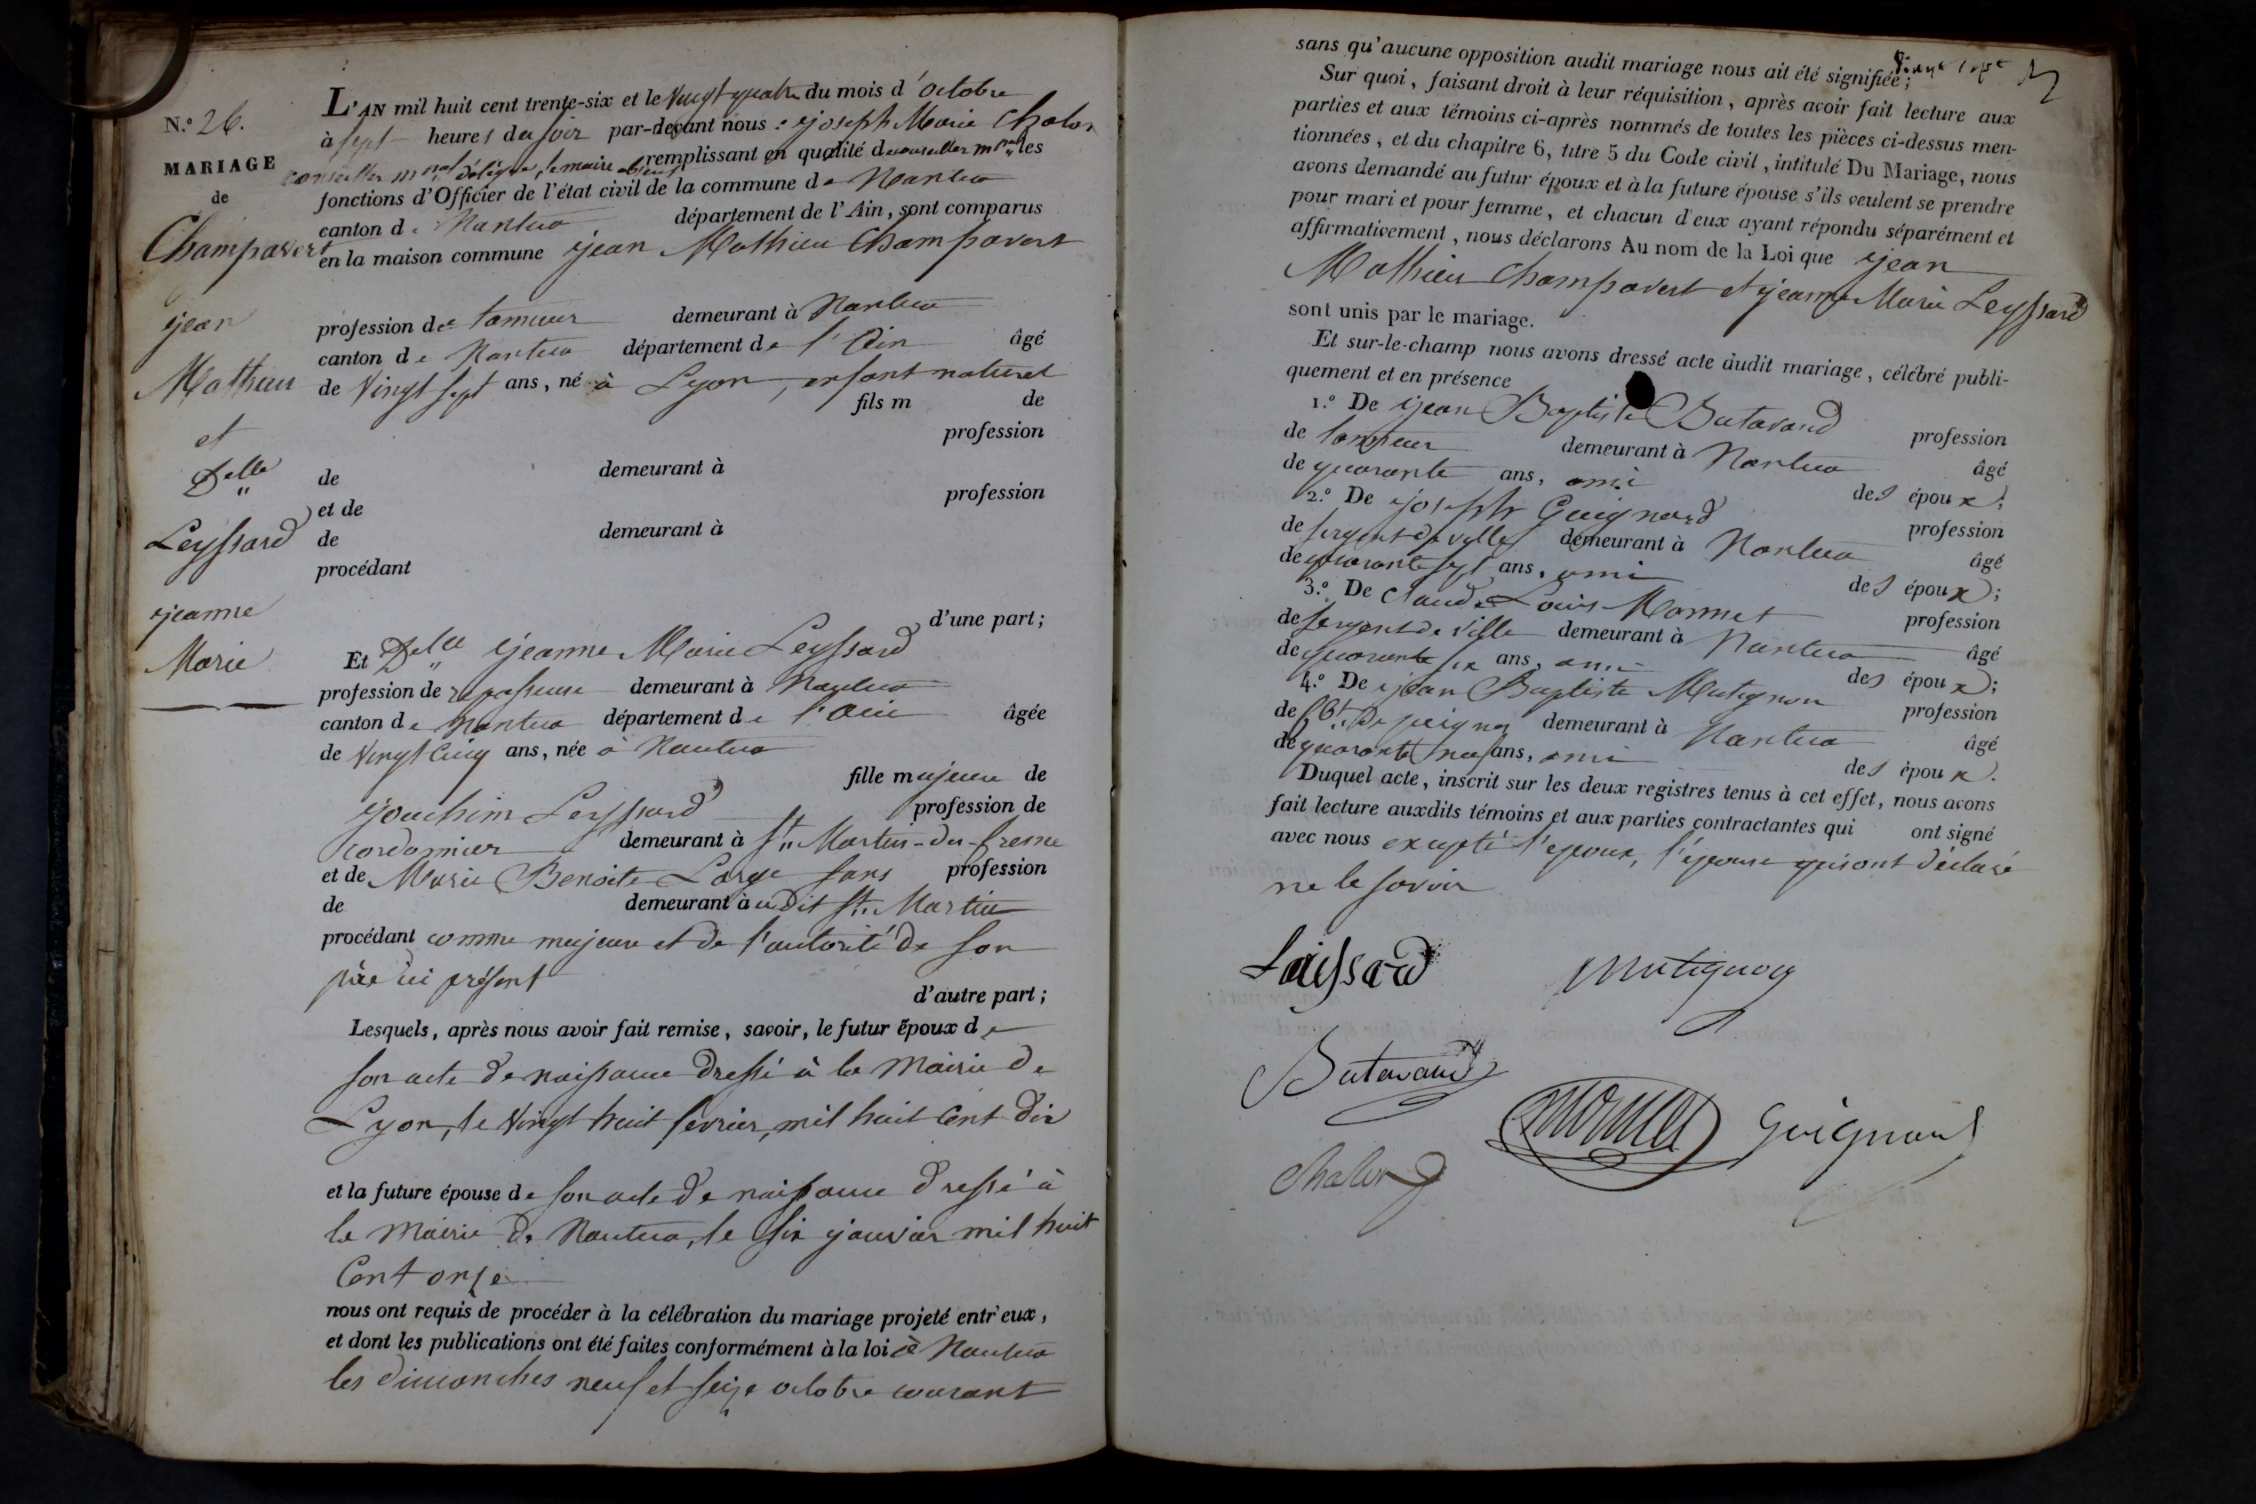 N.º 26.
MARIAGE
de
Champavert
jean
Mathieu
et
Delle
Leyssard
jeanne
Marie
L'AN mil huit cent trente-six et le Vingt quatre du mois d'octobre
à sept heures du soir par-devant nous : joseph Marie Chalon
conseiller mpal délégué, le maire absent remplissant en qualité de conseiller mpal les
fonctions d'Officier de l'état civil de la commune de Nantua
canton de Nantua département de l'Ain, sont comparus
en la maison commune jean Mathieu Champavert
profession de tanneur demeurant à Nantua
canton de Nantua département de l'Ain âgé
de Vingt sept ans, né à Lyon, enfant naturel
fils m de
profession
de demeurant à
et de profession
de demeurant à
procédant
d'une part ;
Et Delle jeanne Marie Leyssard
profession de repasseuse demeurant à Nantua
canton de Nantua département de l'Ain âgée
de Vingt Cinq ans, née à Nantua
fille majeure de
joachim Leyssard profession de
cordonnier demeurant à St Martin-du-fresne
et de Marie Benoite Large sans profession
de demeurant à udit St Martin
procédant comme majeure et de l'autorité de son
père ici présent
d'autre part ;
Lesquels, après nous avoir fait remise, savoir, le futur époux de
son acte de naissance dressé à la Mairie de
Lyon, le Vingt huit février, mil huit Cent dix
et la future épouse de son acte de naissance dressé à
la Mairie de Nantua, le six janvier mil huit
Cent onze
nous ont requis de procéder à la célébration du mariage projeté entr'eux,
et dont les publications ont été faites conformément à la loi à Nantua
les dimanches neuf et seize octobre courant
sans qu'aucune opposition audit mariage nous ait été signifiée ;
Sur quoi, faisant droit à leur réquisition, après avoir fait lecture aux
parties et aux témoins ci-après nommés de toutes les pièces ci-dessus men-
tionnées, et du chapitre 6, titre 5 du Code civil, intitulé Du Mariage, nous
avons demandé au futur époux et à la future épouse s'ils veulent se prendre
pour mari et pour femme, et chacun d'eux ayant répondu séparément et
affirmativement, nous déclarons Au nom de la Loi que jean
Mathieu Champavert et jeanne Marie Leyssard
sont unis par le mariage.
Et sur-le-champ nous avons dressé acte dudit mariage, célébré publi-
quement et en présence
1.º De jean Baptiste Butavand profession
de tanneur demeurant à Nantua âgé
de quarante ans, ami des époux ;
2.º De joseph Guignard profession
de sergent de ville demeurant à Nantua âgé
de quarante sept ans, ami des époux ;
3.º De Claude Louis Monnet profession
de sergent de ville demeurant à Nantua âgé
de quarante six ans, ami des époux ;
4.º De jean Baptiste Mutignon profession
de fbt de peignes demeurant à Nantua âgé
de quarante neuf ans, ami des époux.
Duquel acte, inscrit sur les deux registres tenus à cet effet, nous avons
fait lecture auxdits témoins et aux parties contractantes qui ont signé
avec nous excepté l'epoux, l'épouse qui ont déclaré
ne le savoir
Laissard
Mutignon
Butavand
Monnet
Guignard
Chalon